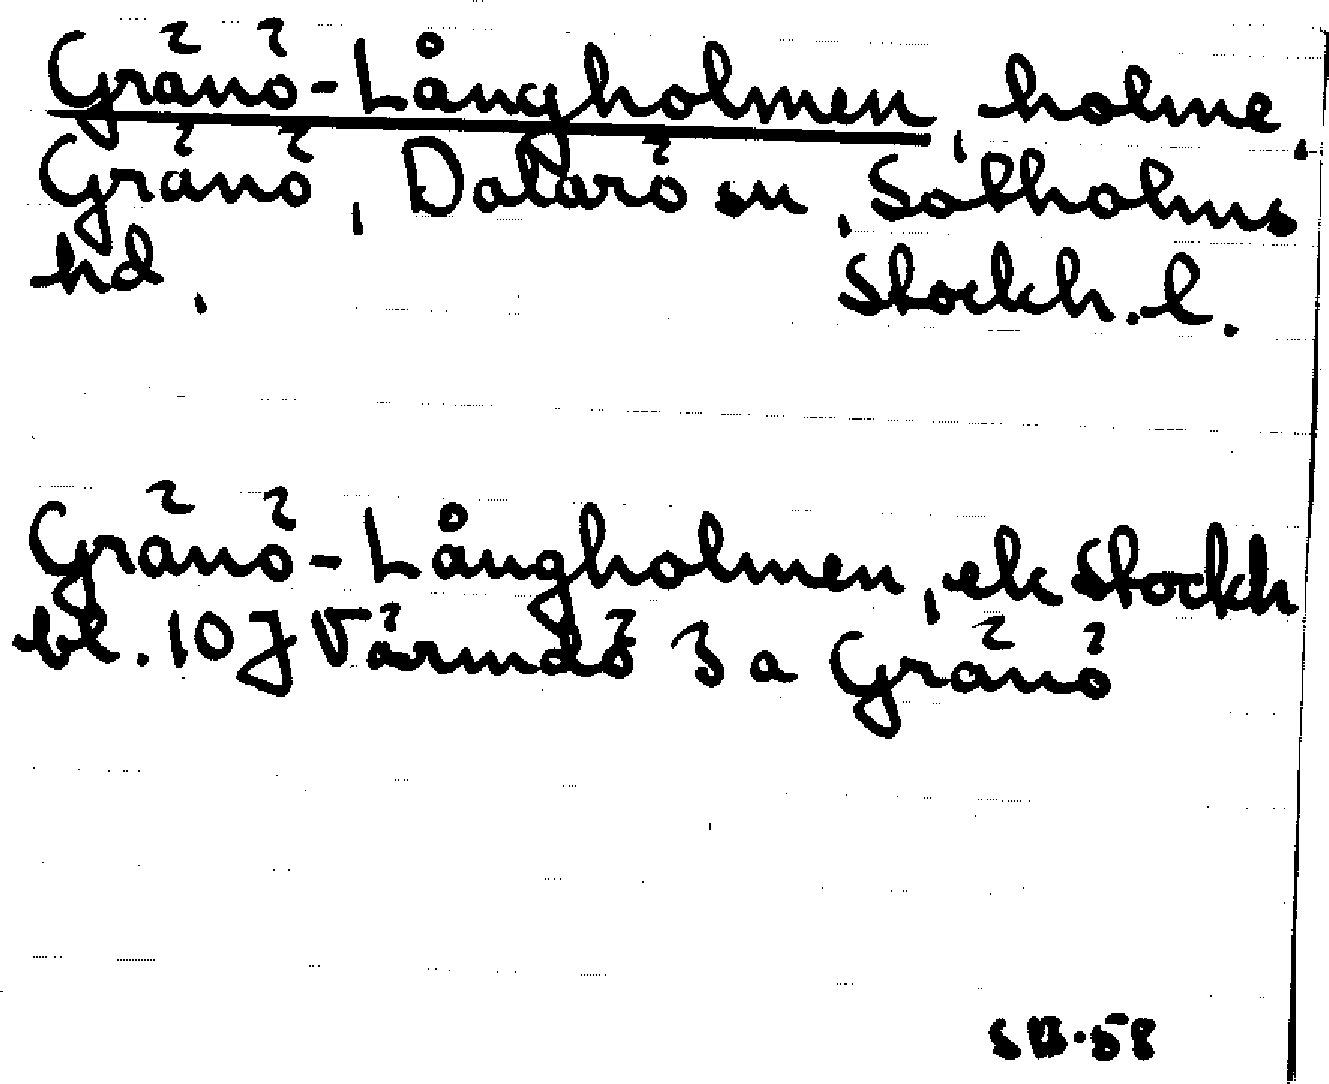 Gränö-Långholmen, holme,
Gränö, Dalarö sn, Sotholms
hd, Stockh. l.
Gränö-Långholmen, ek Stockh
bl. 10 J Värmdö 3 a Gränö
SB.58